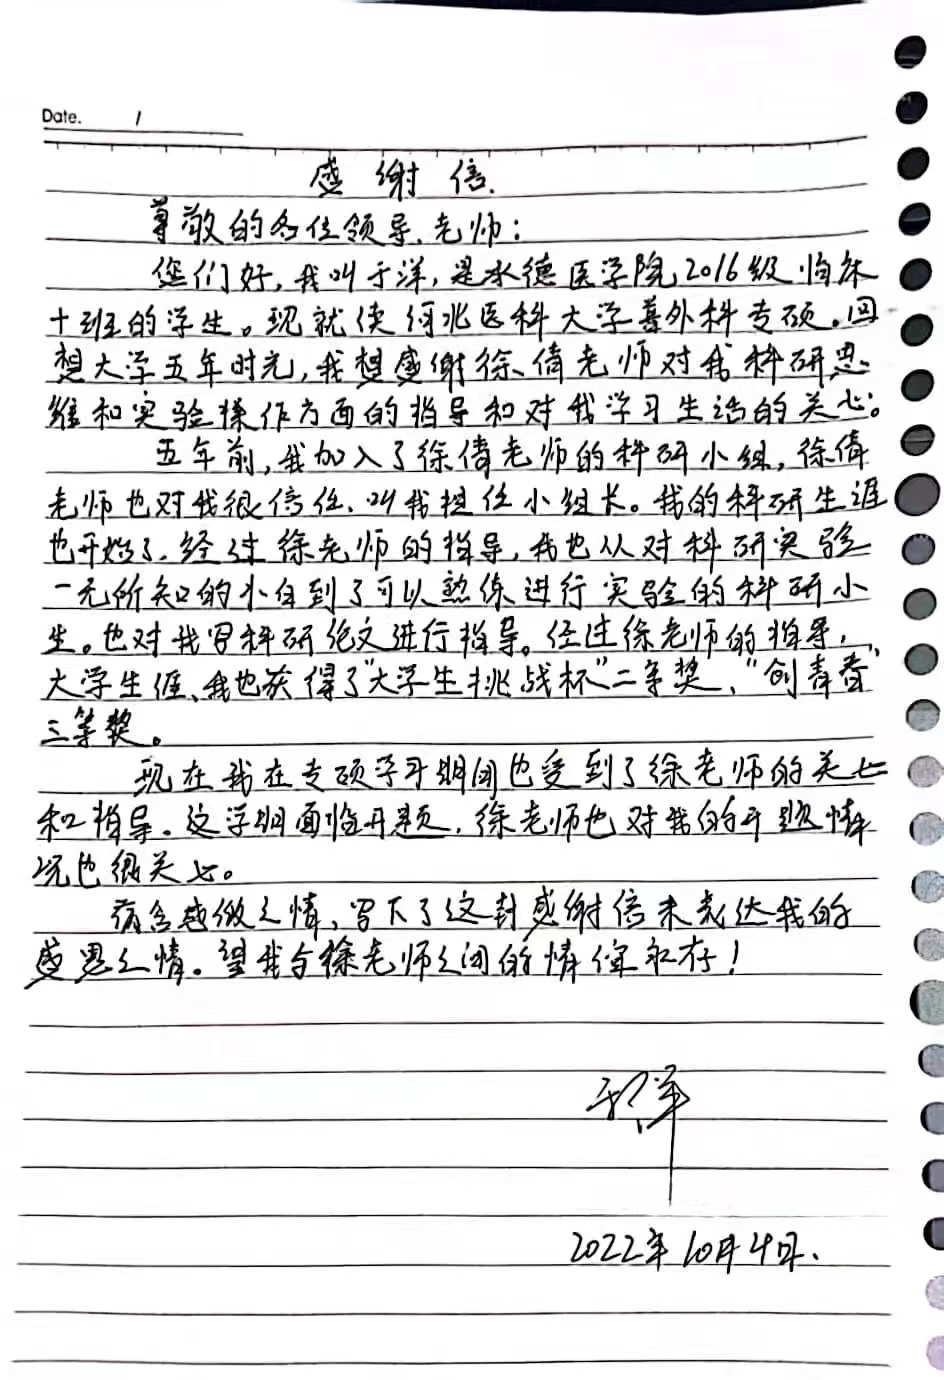 Date. 1
感谢信.
尊敬的各位领导、老师：
您们好，我叫于洋，是承德医学院2016级临床
十班的学生。现就读河北医科大学普外科专硕。回
想大学五年时光，我想感谢徐倩老师对我科研思
维和实验操作方面的指导和对我学习生活的关心。
五年前，我加入了徐倩老师的科研小组，徐倩
老师也对我很信任、叫我担任小组长。我的科研生涯
也开始了.经过徐老师的指导，我也从对科研实验
一无所知的小白到了可以熟练进行实验的科研小
生。也对我写科研论文进行指导。经过徐老师的指导，
大学生涯、我也获得了“大学生挑战杯”二等奖、“创青春”
三等奖。
现在我在专硕学习期间也受到了徐老师的关心
和指导。这学期面临开题，徐老师也对我的开题情
况也很关心。
饱含感激之情，写下了这封感谢信来表达我的
感恩之情。望我与徐老师之间的情谊永存！
于洋
2022年10月4日.